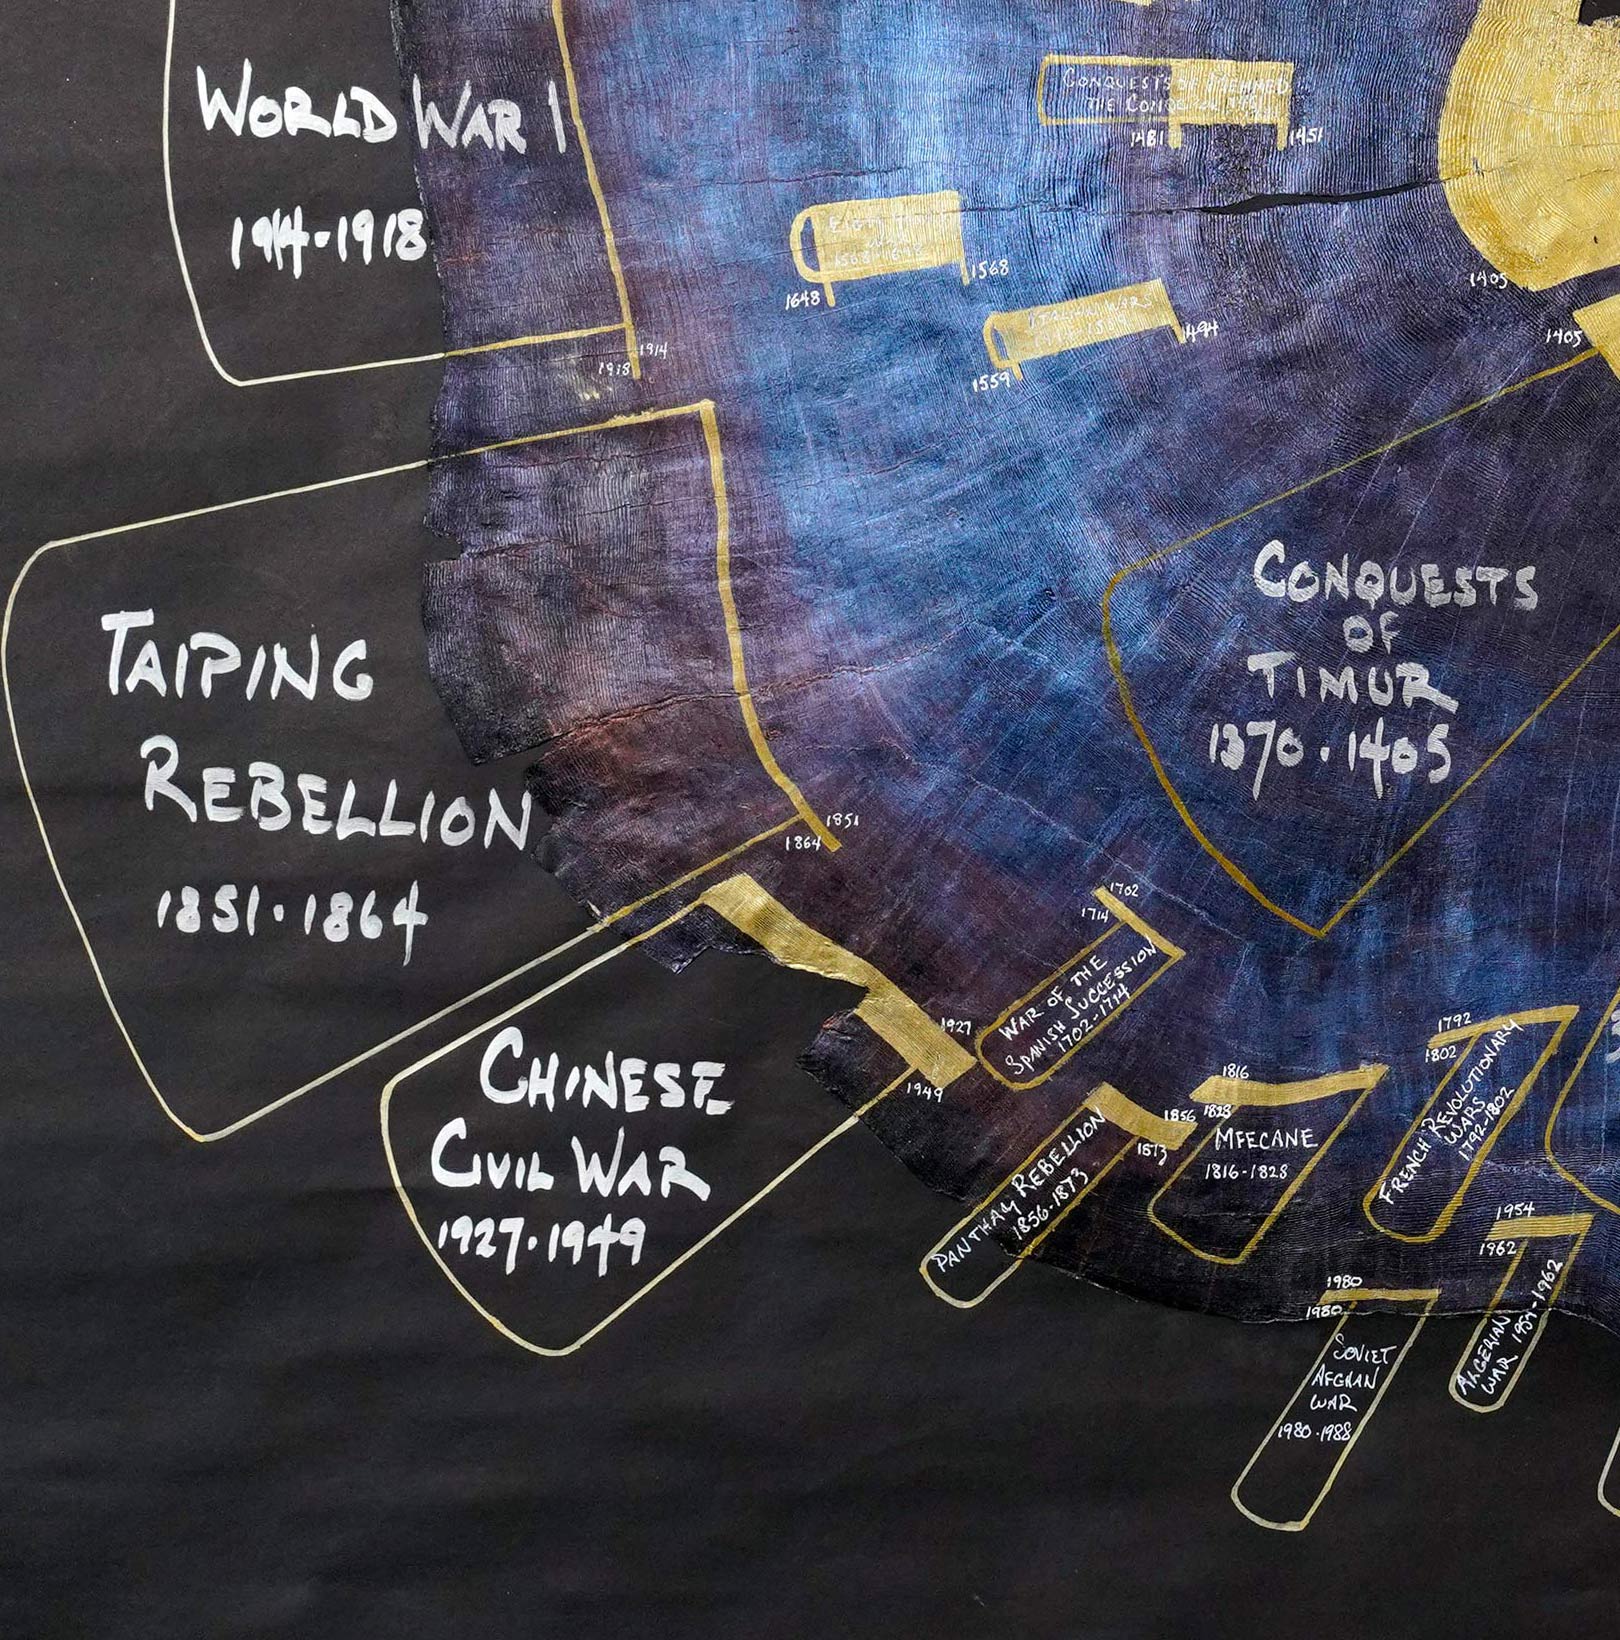 WORLD WAR I
1914-1918
CONQUESTS OF MEHMED
THE CONQUEROR
1481
1451
1568
1648
ITALIAN WARS
1494
1559
1914
1918
1405
1405
CONQUESTS
OF
TIMUR
1370.1405
TAIPING
REBELLION
1851.1864
1851
1864
1702
1714
WAR OF THE
SPANISH SUCCESSION
1702-1714
CHINESE
CIVIL WAR
1927.1949
1927
1949
PANTHAY REBELLION
1856-1873
1856
1873
1816
1828
MFECANE
1816-1828
1792
1802
FRENCH REVOLUTIONARY
WARS
1792-1802
1954
1962
ALGERIAN
WAR 1954-1962
1980
1980
SOVIET
AFGHAN
WAR
1980-1988